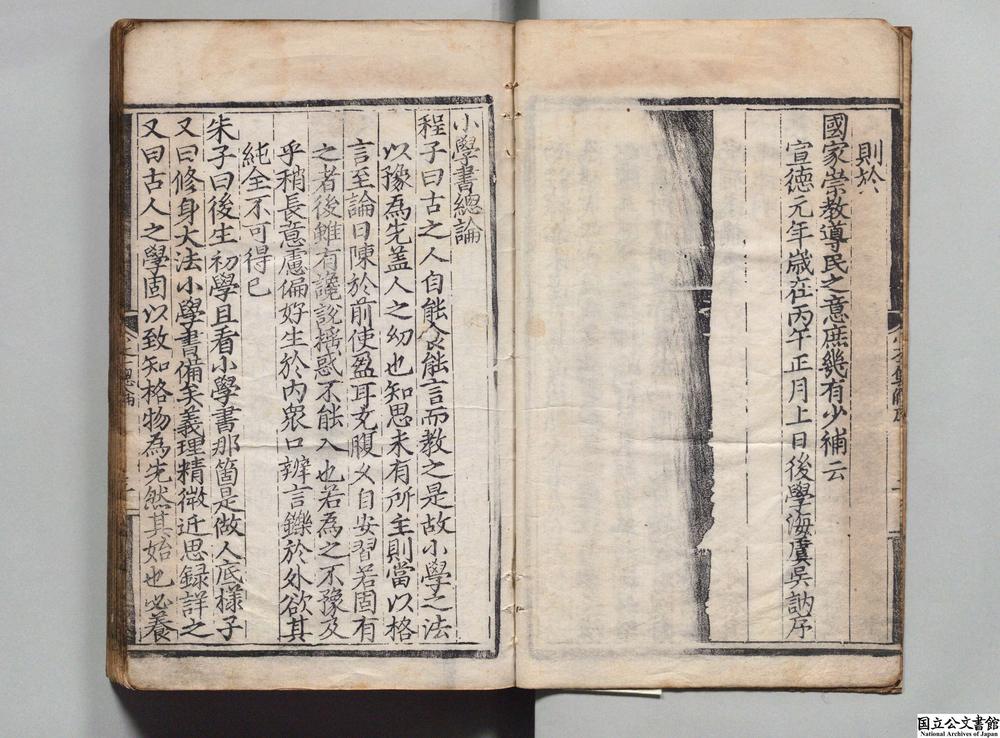 則於
國家崇教導民之意庶幾有少補云
宣德元年歲在丙午正月上日後學海虞吳訥序
小學書總論
程子曰古之人自能食能言而教之是故小學之法
以豫為先盖人之幼也知思未有所主則當以格
言至論日陳於前使盈耳充腹久自安習若固有
之者後雖有讒說揺惑不能入也若為之不豫及
乎稍長意慮偏好生於内衆口辨言鑠於外欲其
純全不可得已
朱子曰後生初學且看小學書那箇是做人底樣子
又曰修身大法小學書備矣義理精微近思録詳之
又曰古人之學固以致知格物為先然其始也必養
国立公文書館
National Archives of Japan